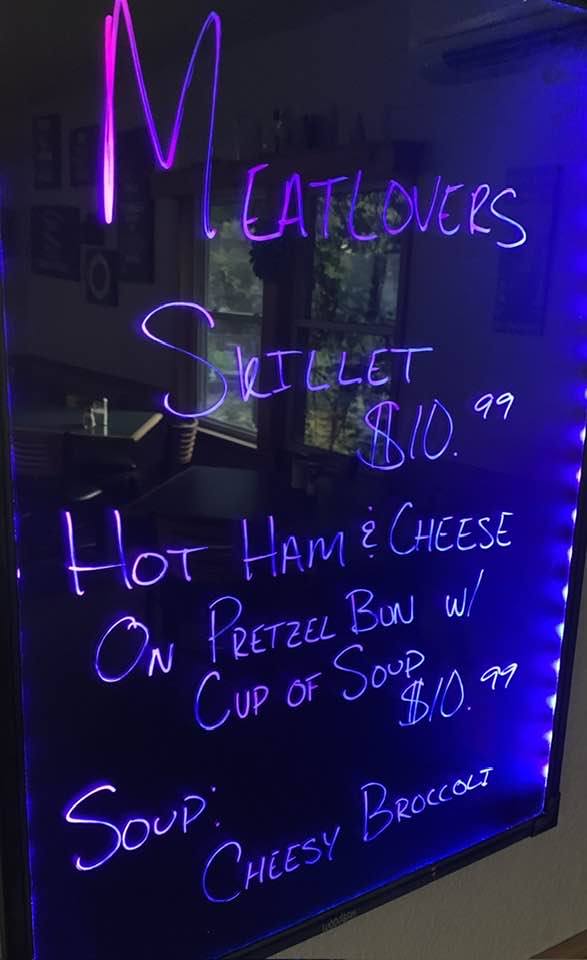 MEATLOVERS
SKILLET
$10.99
HOT HAM & CHEESE
ON PRETZEL BUN W/
CUP OF SOUP
$10.99
SOUP:
CHEESY BROCCOLI